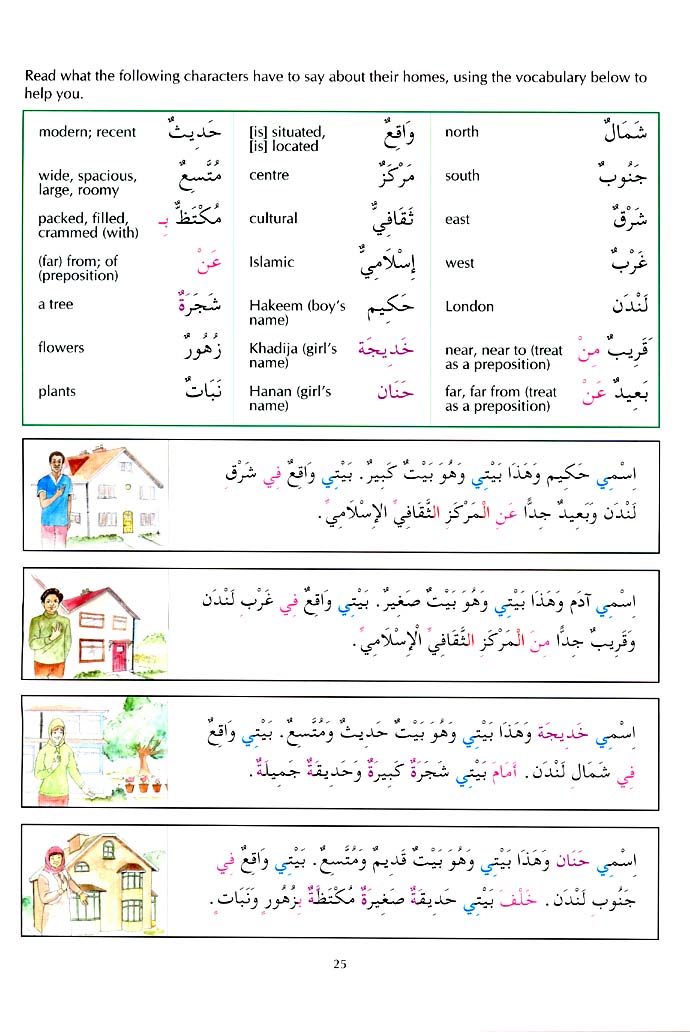 Read what the following characters have to say about their homes, using the vocabulary below to
help you.
modern; recent حَدِيثٌ
wide, spacious,
large, roomy مُتَّسِعٌ
packed, filled,
crammed (with) مُكْتَظٌّ بِـ
(far) from; of
(preposition) عَنْ
a tree شَجَرَةٌ
flowers زُهُورٌ
plants نَبَاتٌ
[is] situated,
[is] located وَاقِعٌ
centre مَرْكَزٌ
cultural ثَقَافِيٌّ
Islamic إِسْلَامِيٌّ
Hakeem (boy's
name) حَكِيم
Khadija (girl's
name) خَدِيجَة
Hanan (girl's
name) حَنَان
north شَمَالٌ
south جَنُوبٌ
east شَرْقٌ
west غَرْبٌ
London لَنْدَن
near, near to (treat
as a preposition) قَرِيبٌ مِنْ
far, far from (treat
as a preposition) بَعِيدٌ عَنْ
اِسْمِي حَكِيم وَهَذَا بَيْتِي وَهُوَ بَيْتٌ كَبِيرٌ. بَيْتِي وَاقِعٌ فِي شَرْق
لَنْدَن وَبَعِيدٌ جِدًّا عَنِ الْمَرْكَزِ الثَّقَافِيِّ الإِسْلَامِيِّ.
اِسْمِي آدَم وَهَذَا بَيْتِي وَهُوَ بَيْتٌ صَغِيرٌ. بَيْتِي وَاقِعٌ فِي غَرْبِ لَنْدَن
وَقَرِيبٌ جِدًّا مِنَ الْمَرْكَزِ الثَّقَافِيِّ الْإِسْلَامِيِّ.
اِسْمِي خَدِيجَة وَهَذَا بَيْتِي وَهُوَ بَيْتٌ حَدِيثٌ وَمُتَّسِعٌ. بَيْتِي وَاقِعٌ
فِي شَمَالِ لَنْدَن. أَمَامَ بَيْتِي شَجَرَةٌ كَبِيرَةٌ وَحَدِيقَةٌ جَمِيلَةٌ.
اِسْمِي حَنَان وَهَذَا بَيْتِي وَهُوَ بَيْتٌ قَدِيمٌ وَمُتَّسِعٌ. بَيْتِي وَاقِعٌ فِي
جَنُوبِ لَنْدَن. خَلْفَ بَيْتِي حَدِيقَةٌ صَغِيرَةٌ مُكْتَظَّةٌ بِزُهُورٍ وَنَبَاتٍ.
25